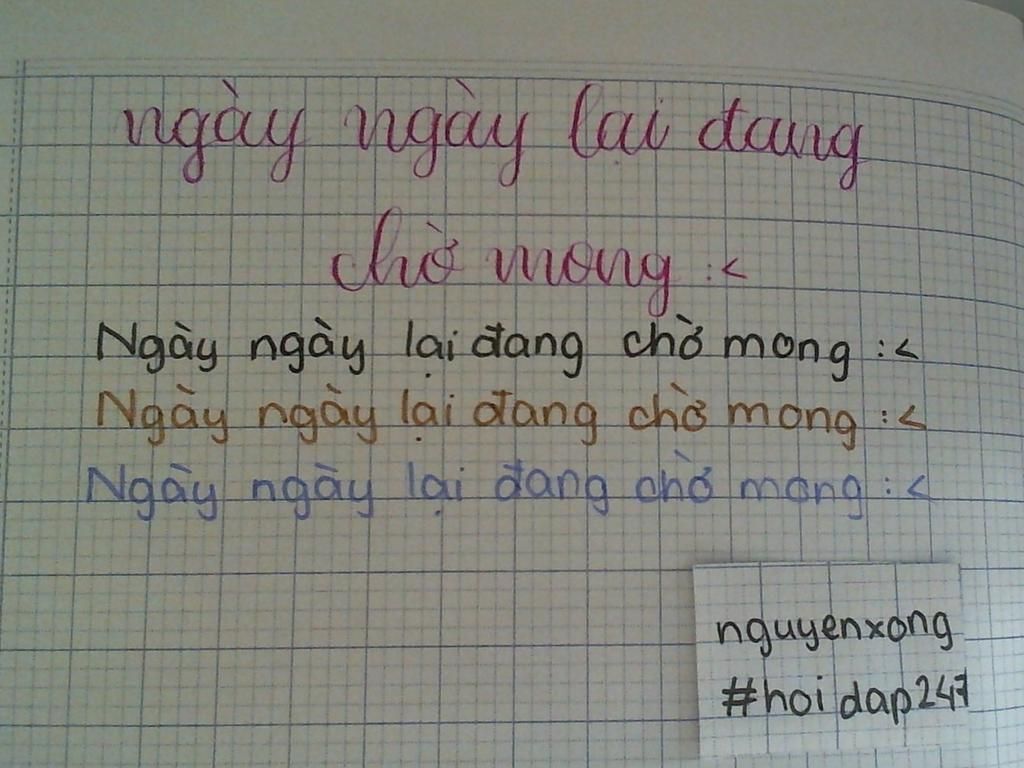 ngày ngày lại đang
chờ mong :<
Ngày ngày lại đang chờ mong :<
Ngày ngày lại đang chờ mong :<
Ngày ngày lại đang chờ mong :<
nguyenxong
#hoidap247